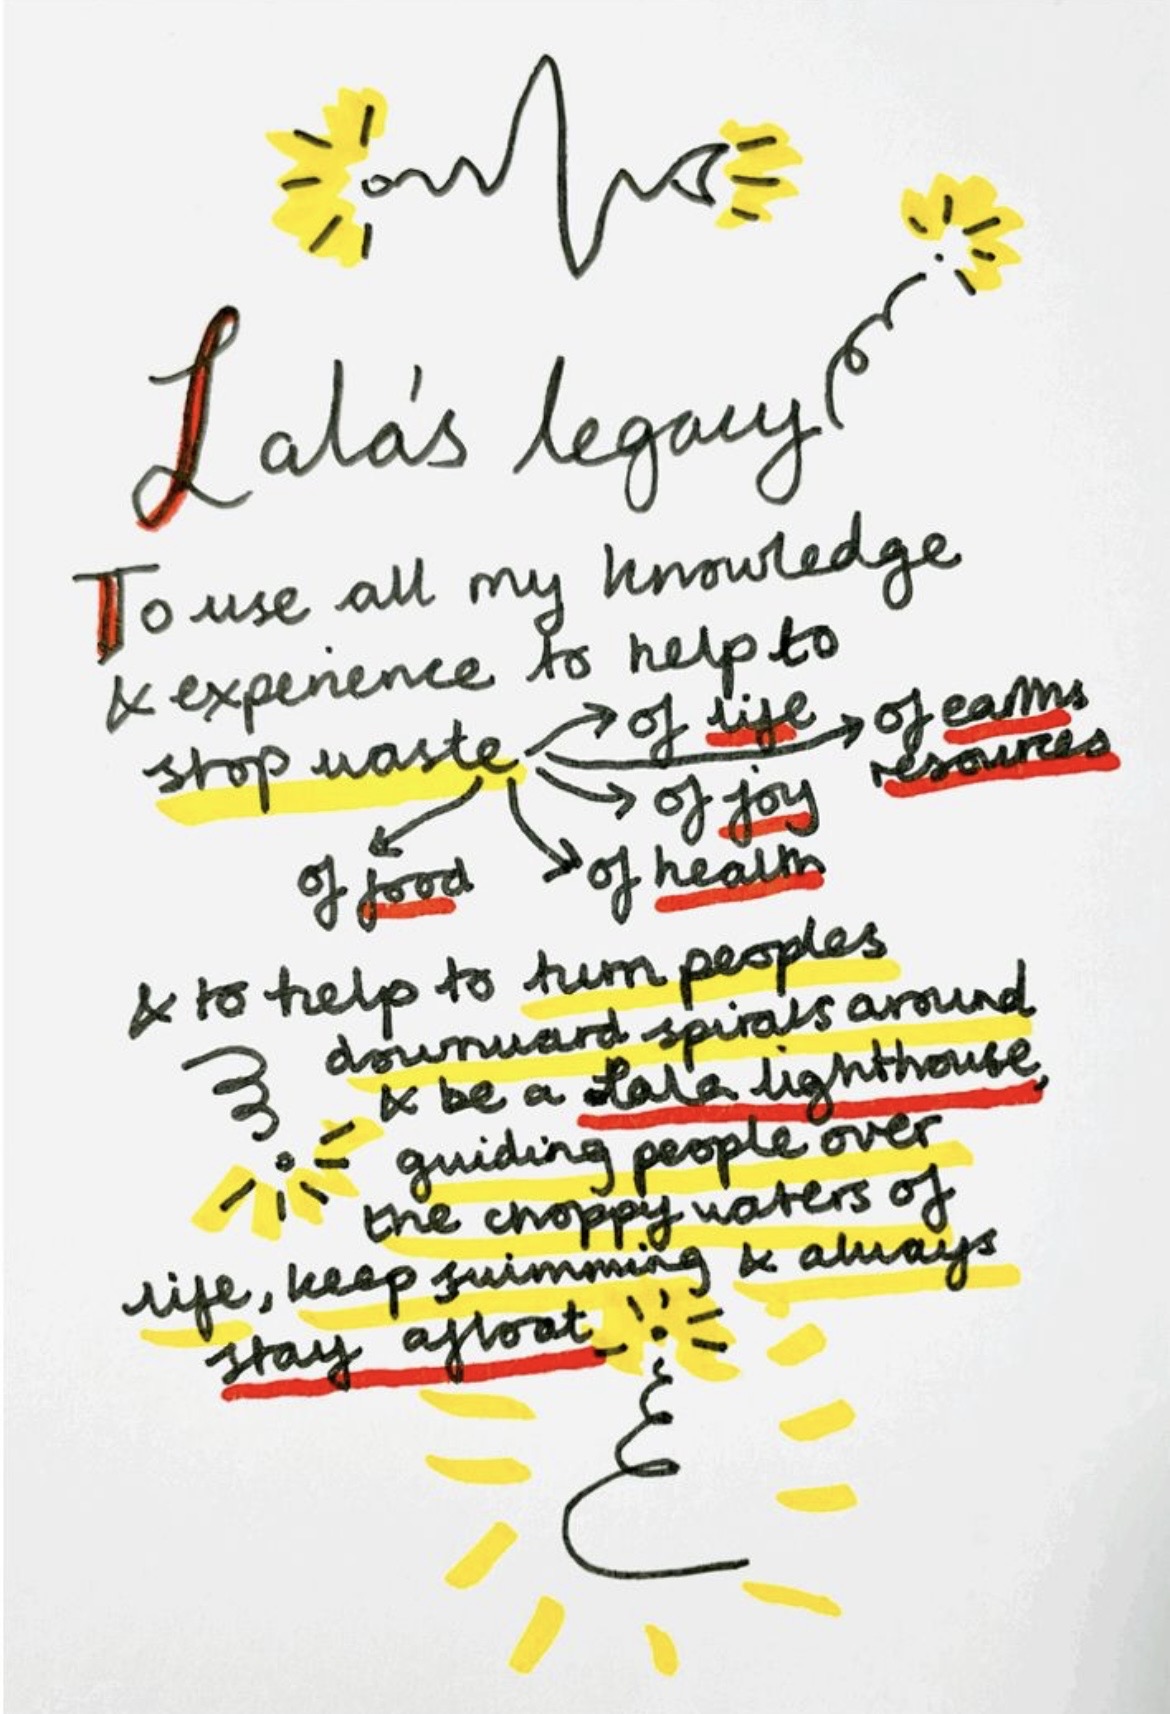 Lala's legacy
To use all my knowledge
& experience to help to
stop waste → of life → of earths
resources
→ of joy
of food → of health
& to help to turn peoples
downward spirals around
& be a Lala lighthouse,
guiding people over
the choppy waters of
life, keep swimming & always
stay afloat